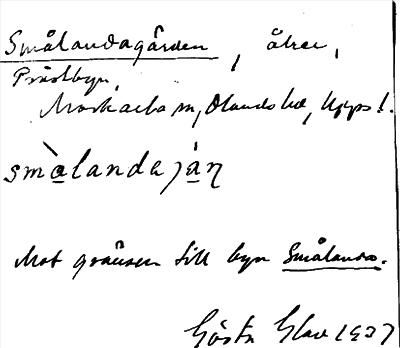 Smålandagården, åker,
Prästbyn,
Morkarla sn, Olands hd, Uppl.
smàlandajáɳ
Mot gränsen till byn Smålanda.
Gösta Glav 1937